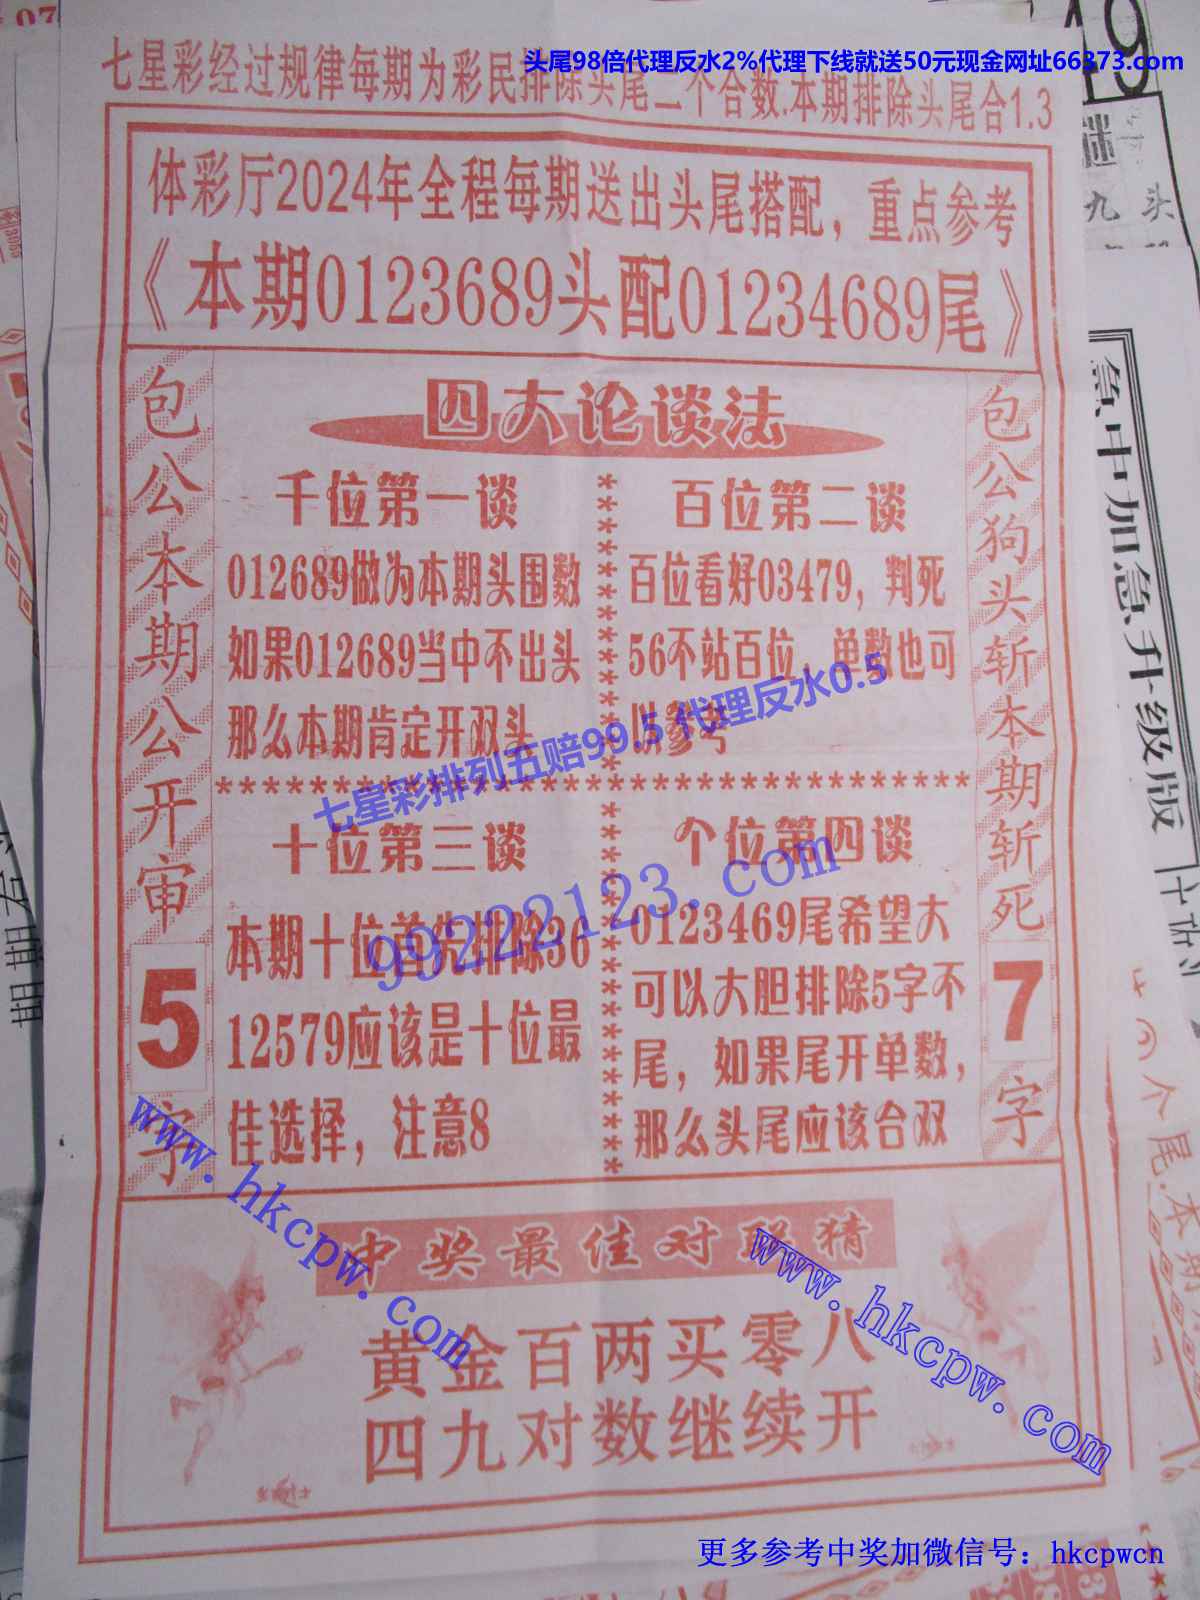 07
头尾98倍代理反水2%代理下线就送50元现金网址66373.com
七星彩经过规律每期为彩民排除头尾二个合数.本期排除头尾合1.3
体彩厅2024年全程每期送出头尾搭配，重点参考
《本期0123689头配01234689尾》
包公本期公开审5字
四大论谈法
千位第一谈
012689做为本期头围数
如果012689当中不出头
那么本期肯定开双头
百位第二谈
百位看好03479，判死
56不站百位，单数也可
以参考
十位第三谈
本期十位首先排除36
12579应该是十位最
佳选择，注意8
个位第四谈
0123469尾希望大
可以大胆排除5字不
尾，如果尾开单数，
那么头尾应该合双
包公狗头斩本期斩死7字
七星彩排列五赔99.5 代理反水0.5
99222123.com
中奖最佳对联猜
黄金百两买零八
四九对数继续开
www.hkcpw.com
www.hkcpw.com
更多参考中奖加微信号：hkcpwcn
九 头
急中加急升级版
个尾.本